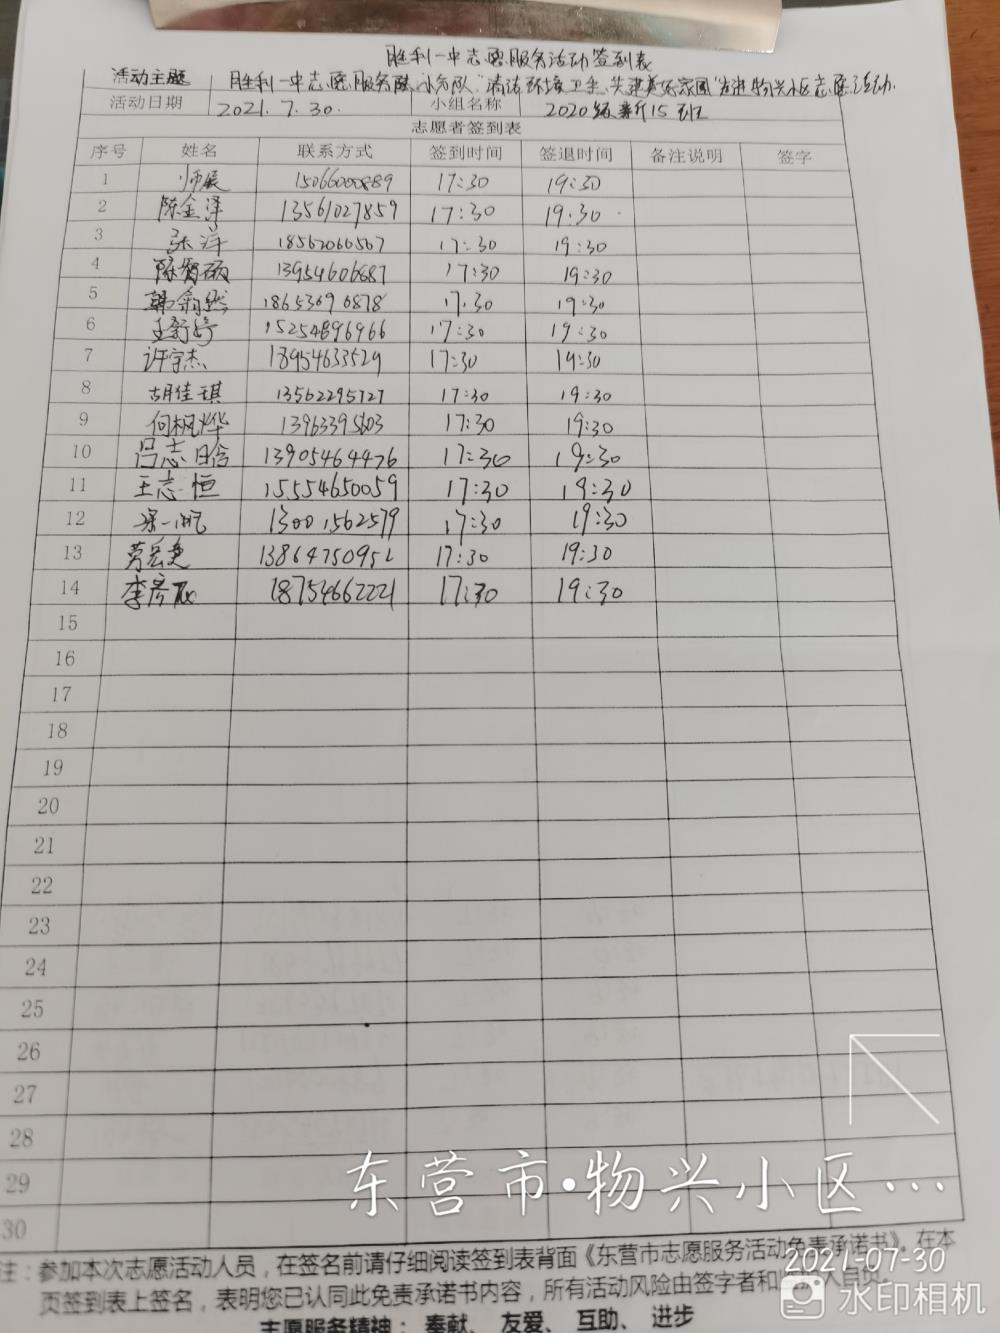 胜利一中志愿服务活动签到表
活动主题 胜利一中志愿服务 小分队"清洁环境卫生,共建美好家园"走进物兴小区志愿活动.
活动日期 2021.7.30. 小组名称 2020级新15班
志愿者签到表
序号 姓名 联系方式 签到时间 签退时间 备注说明 签字
1 师展 15066000889 17:30 19:30
2 陈金泽 13561027859 17:30 19:30
3 张洋 18562060567 17:30 19:30
4 陈智硕 13954606687 17:30 19:30
5 韩 然 18653690878 17:30 19:30
6 王舒婷 15254896966 17:30 19:30
7 许宇杰 18954633529 17:30 19:30
8 胡佳琪 13562295727 17:30 19:30
9 何枫烨 13963395603 17:30 19:30
10 吕志晗 13905464476 17:30 19:30
11 王志恒 15554650059 17:30 19:30
12 梁一帆 13001562579 17:30 19:30
13 13864750952 17:30 19:30
14 李彦 18754662221 17:30 19:30
15
16
17
18
19
20
21
22
23
24
25
26
27
28
29
30
东营市·物兴小区...
注:参加本次志愿活动人员,在签名前请仔细阅读签到表背面《东营市志愿服务活动免责承诺书》。在本
页签到表上签名,表明您已认同此免责承诺书内容,所有活动风险由签字者和 人自负。
志愿服务精神: 奉献、 友爱、 互助、 进步
2021-07-30
水印相机